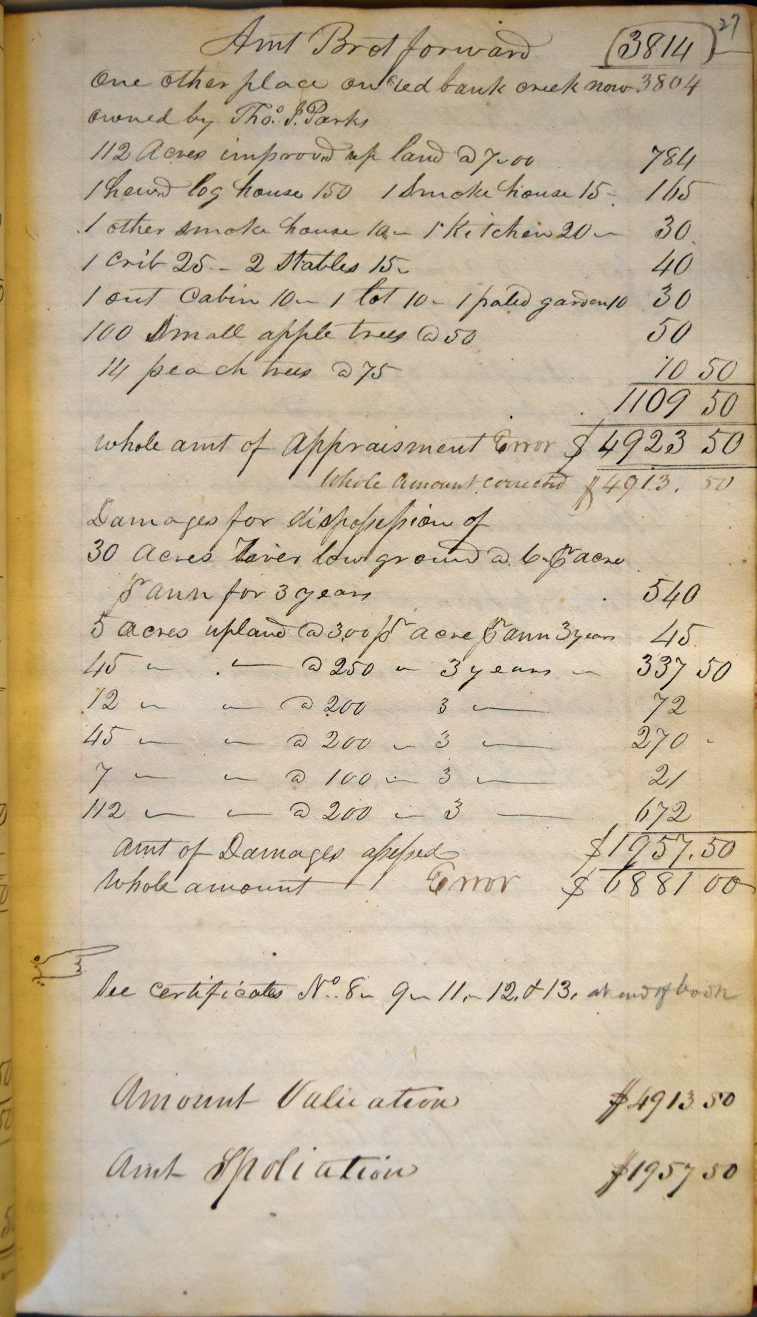 27
Amt Brot forward (3814)
One other place on red bank creek now 3804
owned by Thos. J. Parks
112 Acres improved up land @ 7.00 784
1 hewd log house 150 1 Smoke house 15 165
1 other smoke house 10 1 Kitchen 20 30
1 Crib 25 2 Stables 15 40
1 out Cabin 10 1 lot 10 1 paled garden 10 30
100 Small apple trees @ 50 50
14 peach trees @ 75 10 50
1109 50
whole amt of Appraisment Error $4923 50
Whole Amount corrected $4913. 50
Damages for dispossession of
30 Acres River low ground @ 6 pr acre
pr ann for 3 years 540
5 acres upland @ 300 pr acre pr ann 3 years 45
45 " " @ 250 " 3 years " 337 50
12 " " @ 200 3 " 72
45 " " @ 200 " 3 " 270
7 " " @ 100 " 3 " 21
112 " " @ 200 " 3 " 672
Amt of Damages assessed $1957.50
Whole amount Error $6881 00
See certificates No. 8 9 11 12 & 13. at end of book
Amount Valuation $4913 50
Amt Spoliation $1957 50